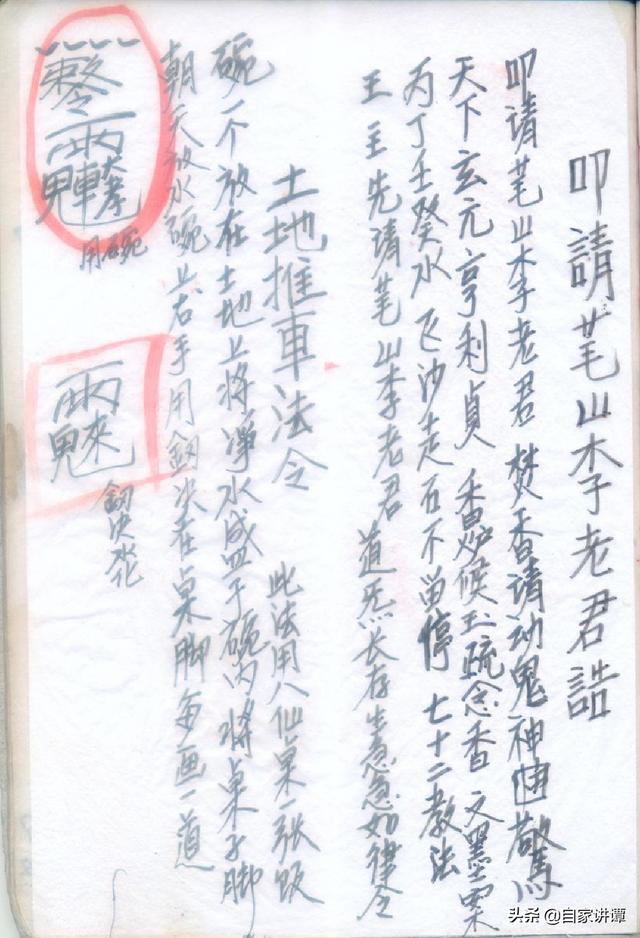 叩請茅山李老君誥
叩请茅山李老君 焚香请动鬼神惊
天下玄元亨利贞 香炉候玉疏念香文墨案
丙丁壬癸水飞沙走石不留停 七十二教法
王王先请茅山李老君 道炁长存生意急如律令
土地推車法令 此法用八仙桌一张饭
碗一个放在土地上将净水成皿于碗内将桌子脚
朝天放水碗上右手用劍决在桌脚每画一道
用碗
劍决水化
头条 @自家讲谭